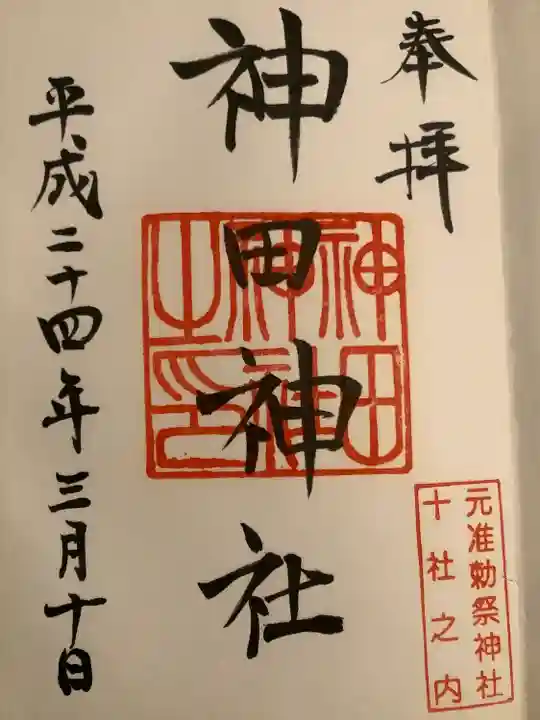 奉拝
神田神社
神田
神社
之印
平成二十四年三月十日
元准勅祭神社
十社之内